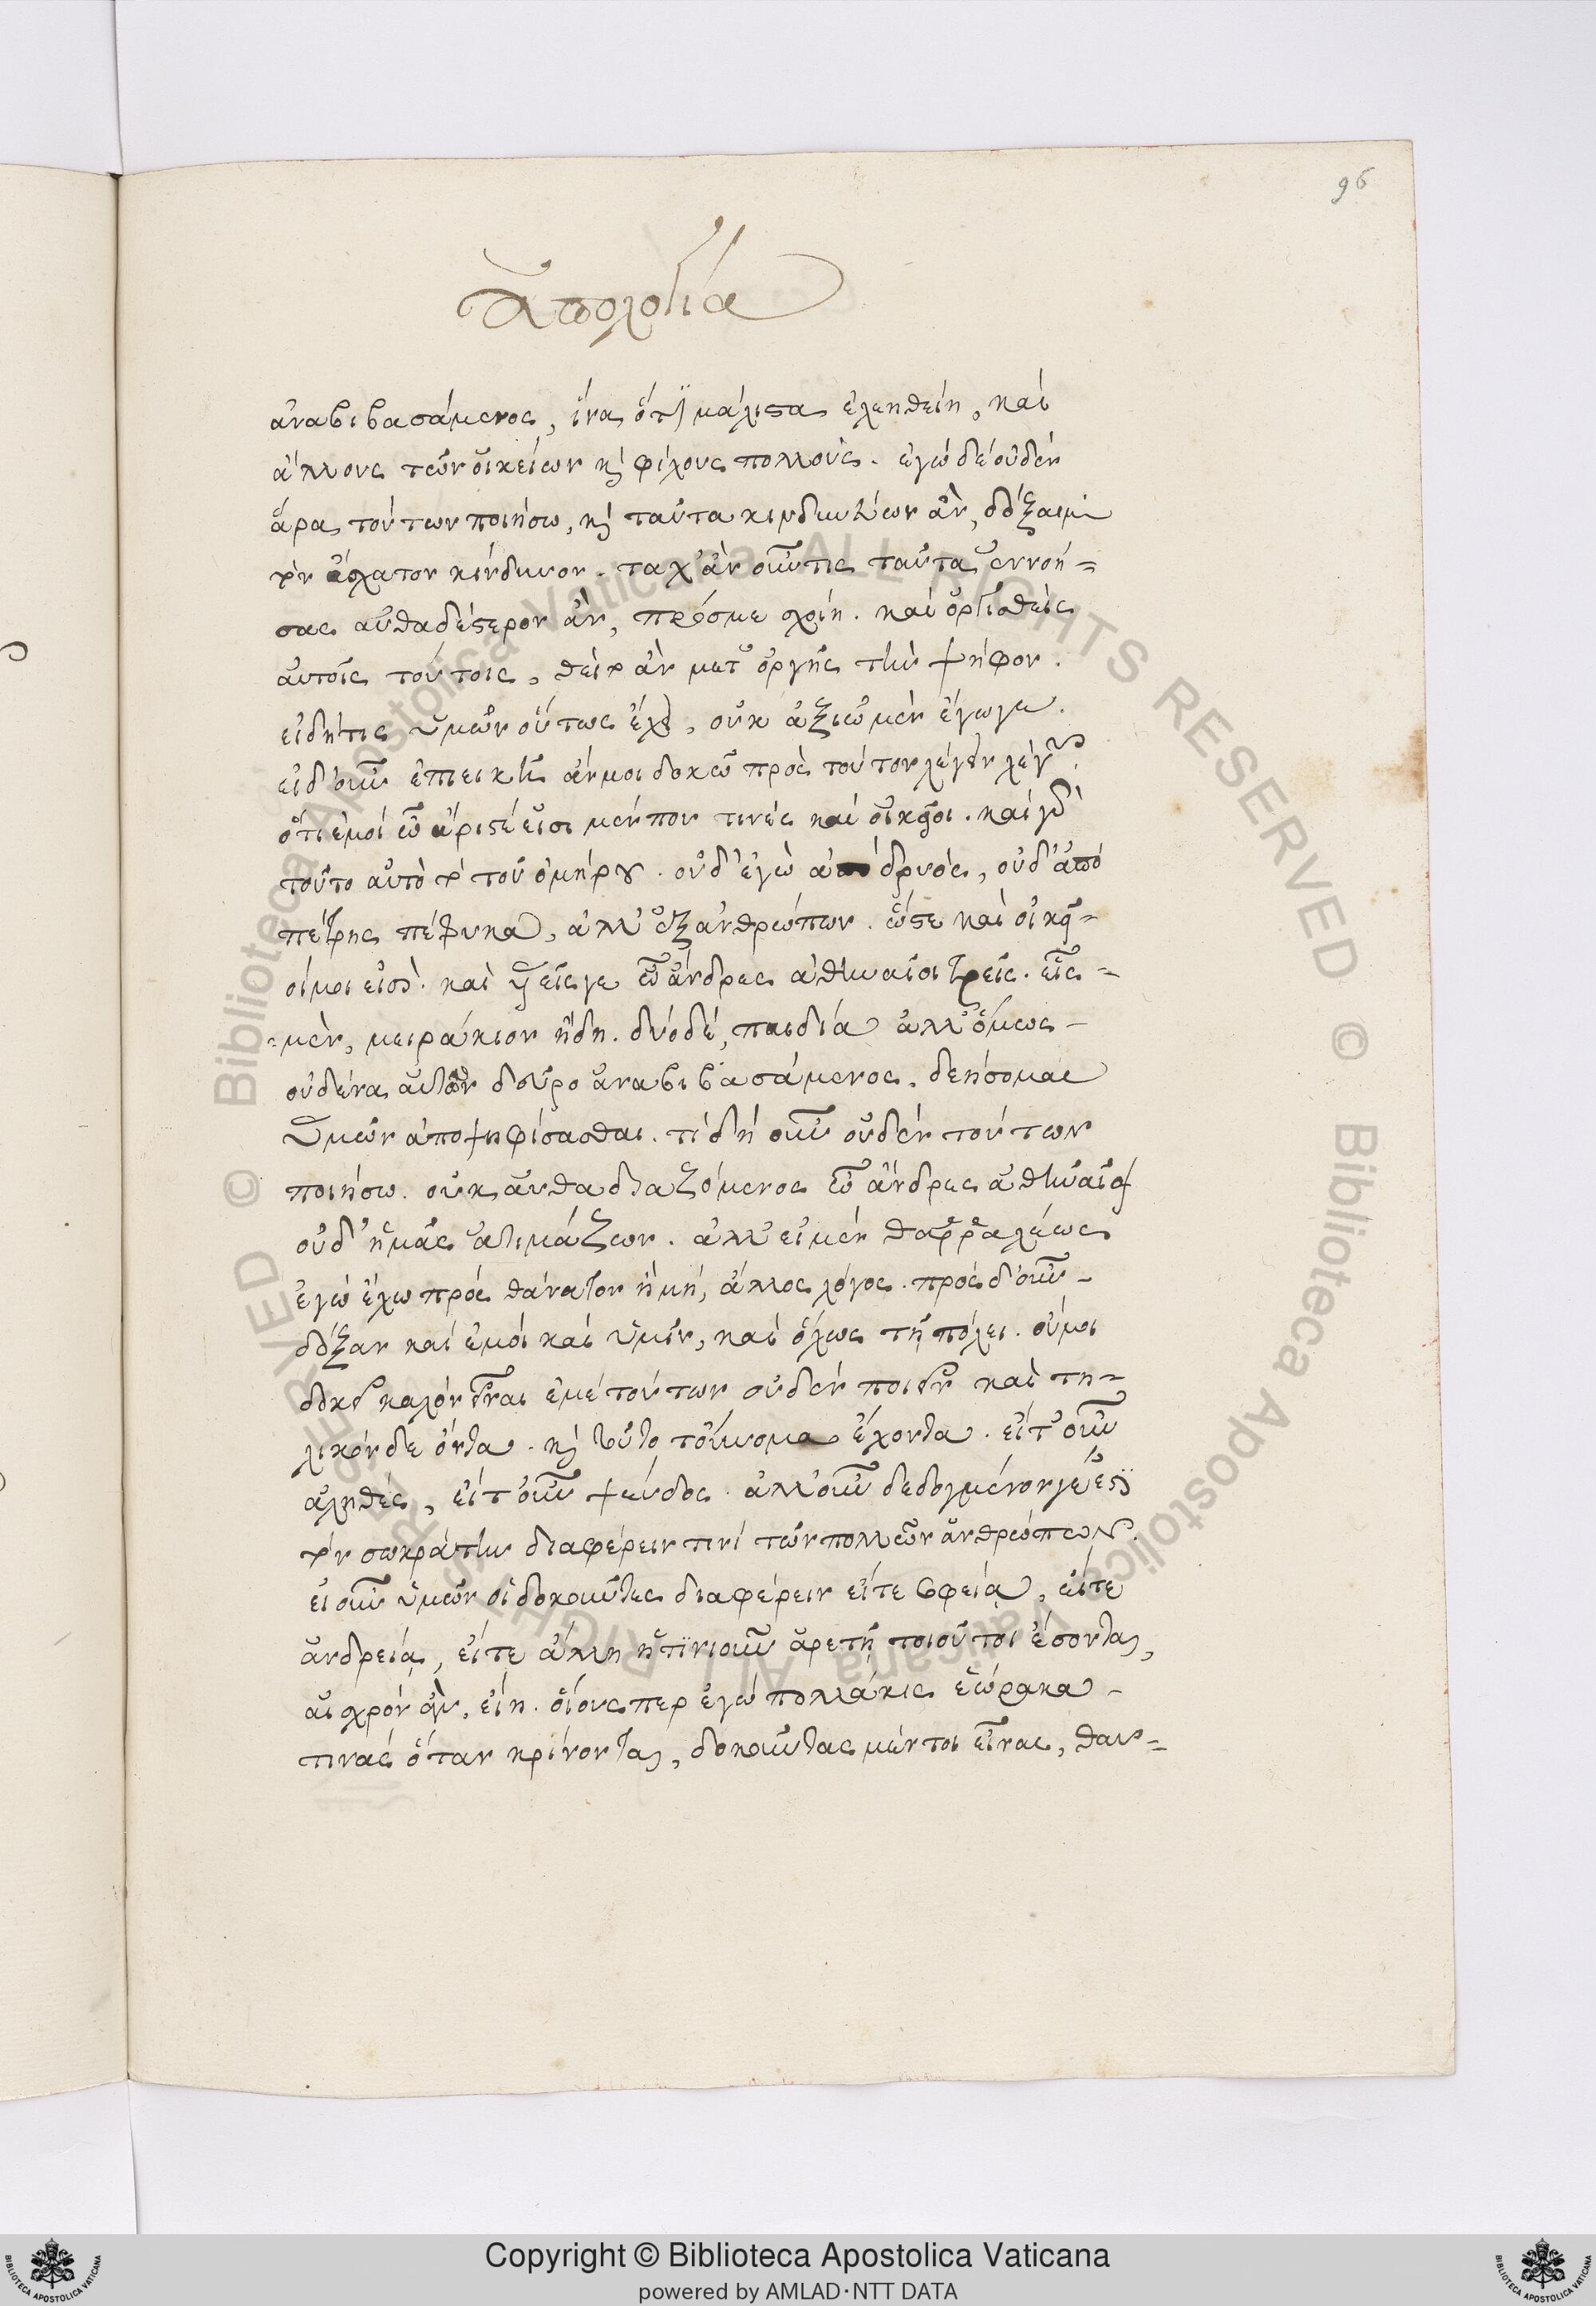 96
ἀπολογία
ἀναβιβασάμενος, ἵνα ὅτι μάλιστα ἐλεηθείη, καὶ
ἄλλους τῶν οἰκείων κ φίλους πολλούς. ἐγὼ δὲ οὐδὲν
ἄρα τούτων ποιήσω, κ ταῦτα κινδυνεύων ἂν, δόξαιμι
τὸν ἔσχατον κίνδυνον. τάχ' ἂν οὖν τις ταῦτα ἐννοή=
σας αὐθαδέστερον ἂν, πρός με σχοίη. καὶ ὀργισθεὶς
αὐτοῖς τούτοις, θεῖτο ἂν μετ' ὀργῆς τὴν ψῆφον.
εἰ δή τις ὑμῶν οὕτως ἔχει, οὐκ ἀξιῶ μὲν ἔγωγε.
εἰ δ' οὖν ἐπιεικῆ ἄν μοι δοκῶ πρὸς τοῦτον λέγειν λέγων
ὅτι ἐμοὶ ὦ ἄριστέ εἰσι μέν που τινὲς καὶ οἰκεῖοι. καὶ γὰρ
τοῦτο αὐτὸ τὸ τοῦ ὁμήρου. οὐδ' ἐγὼ ἀπὸ δρυὸς, οὐδ' ἀπὸ
πέτρης πέφυκα, ἀλλ' ἐξ ἀνθρώπων. ὥστε καὶ οἰκεῖ=
οί μοι εἰσὶ. καὶ υἱεῖς γε ὦ ἄνδρες ἀθηναῖοι τρεῖς. εἷς -
=μὲν, μειράκιον ἤδη. δύο δὲ, παιδία ἀλλ' ὅμως -
οὐδένα αὐτῶν δεῦρο ἀναβιβασάμενος, δεήσομαι
ὑμῶν ἀποψηφίσασθαι. τί δὴ οὖν οὐδὲν τούτων
ποιήσω. οὐκ αὐθαδιαζόμενος ὦ ἄνδρες ἀθηναῖοι
οὐδ' ἡμᾶς ἀτιμάζων. ἀλλ' εἰ μὲν θαῤῥαλέως
ἐγὼ ἔχω πρὸς θάνατον ἢ μὴ, ἄλλος λόγος. πρὸς δ' οὖν -
δόξαν καὶ ἐμοὶ καὶ ὑμῖν, καὶ ὅλως τῇ πόλει. οὔ μοι
δοκεῖ καλὸν εἶναι ἐμὲ τούτων οὐδὲν ποιεῖν καὶ τη=
λικόνδε ὄντα. κ τοῦτο τοὔνομα ἔχοντα. εἴτ' οὖν
ἀληθὲς, εἴτ' οὖν ψεῦδος. ἀλλ' οὖν δεδογμένον γέ ἐστι
τὸν σωκράτην διαφέρειν τινὶ τῶν πολλῶν ἀνθρώπων.
εἰ οὖν ὑμῶν οἱ δοκοῦντες διαφέρειν εἴτε σοφίᾳ, εἴτε
ἀνδρείᾳ, εἴτε ἄλλῃ ᾗτινιοῦν ἀρετῇ τοιοῦτοι ἔσονται,
αἰσχρὸν ἂν, εἴη. οἵους περ ἐγὼ πολλάκις ἑώρακα -
τινὰς ὅταν κρίνονται, δοκοῦντας μέν τοι εἶναι, θαυ=
Copyright © Biblioteca Apostolica Vaticana
powered by AMLAD·NTT DATA